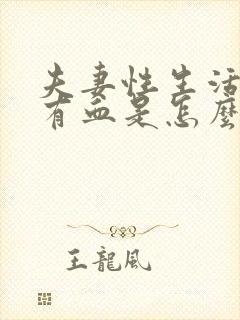 夫妻性生活
有血是怎麼
王龍風